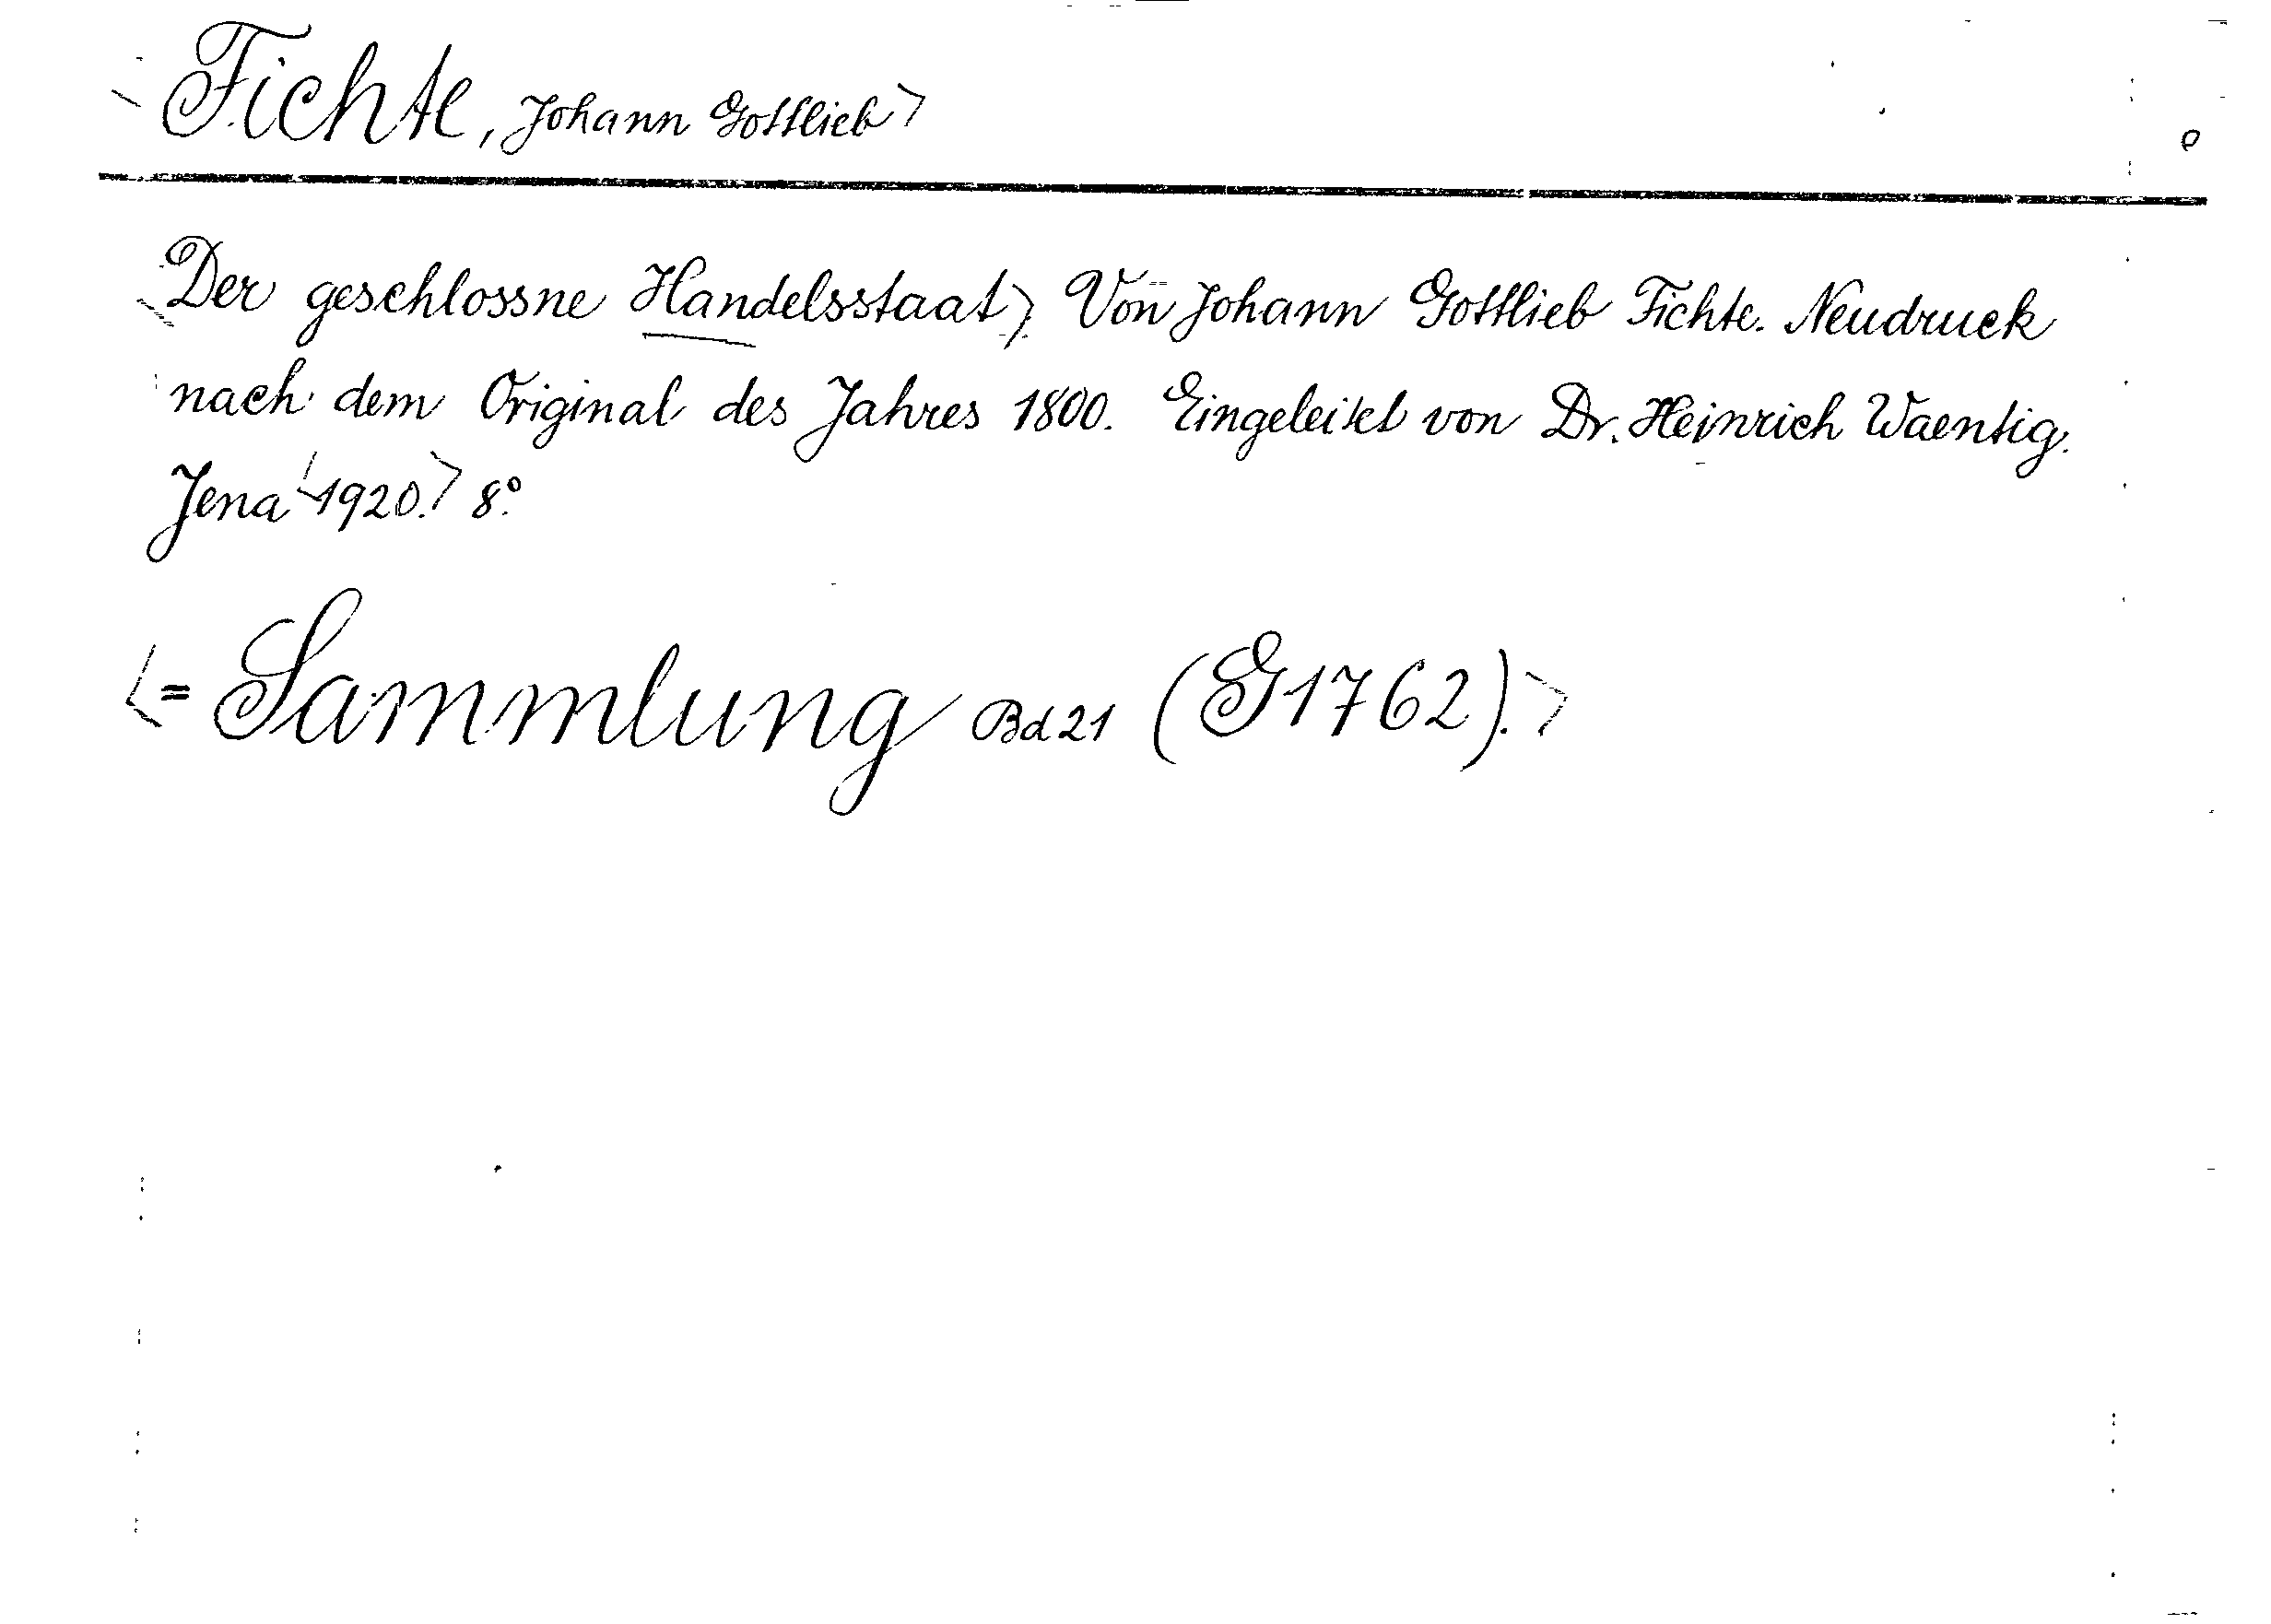 <Fichte, Johann Gottlieb>
<Der geschlossne Handelsstaat>. Von Johann Gottlieb Fichte. Neudruck
nach dem Original des Jahres 1800. Eingeleitet von Dr. Heinrich Waentig.
Jena <1920.> 8°.
<= Sammlung Bd 21 (G1762).>